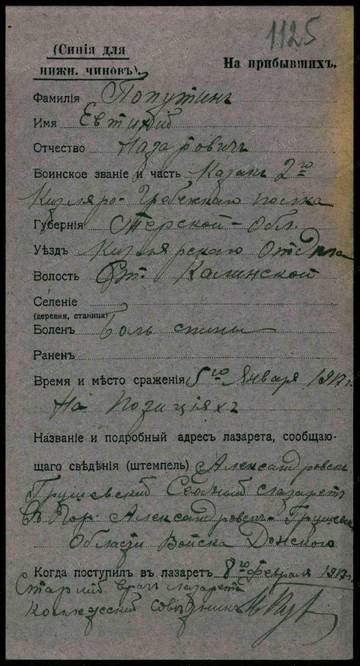 1125
(Синія для
нижн. чиновъ).
На прибывшихъ.
Фамилія Попутинъ
Имя Евтихій
Отчество Назаровичъ
Воинское званіе и часть Казакъ 2го
Кизляро-Гребенского полка
Губернія Терской-Обл.
Уѣздъ Кизлярского Отдѣла
Волость Ст. Калинской
Селеніе
(деревня, станица)
Боленъ Боль спины
Раненъ
Время и мѣсто сраженія 5го Января 1917г
На позиціяхъ
Названіе и подробный адресъ лазарета, сообщаю-
щаго свѣдѣнія (штемпель) Александровск
Грушевскій лазаретъ
В гор. Александровск-Грушев
Области Войска Донского
Когда поступилъ въ лазаретъ 8го Февраля 1917г.
Старшій врачъ лазарета
Коллежскій совѣтникъ